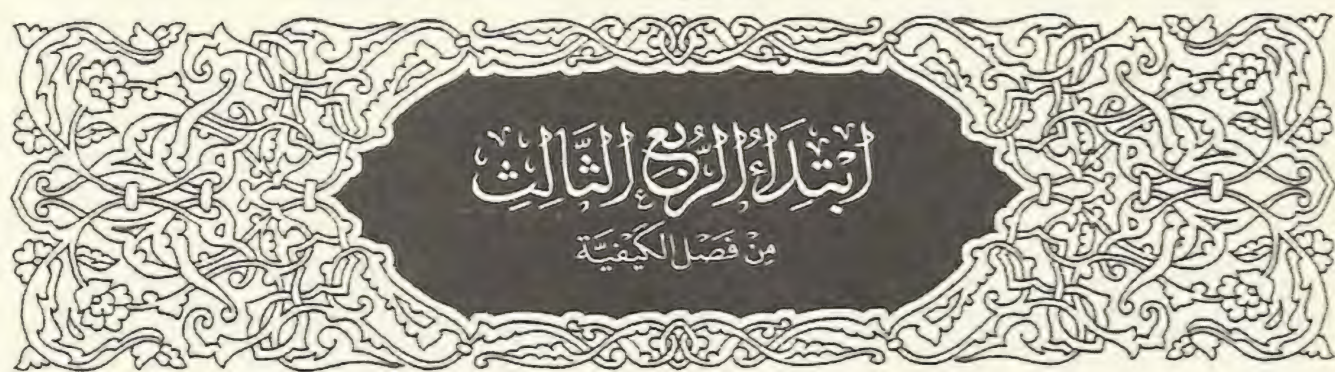 ابْتِدَاءُ الرُّبُعِ الثَّالِثِ
مِنْ فَصْلِ الْكَيْفِيَّةِ